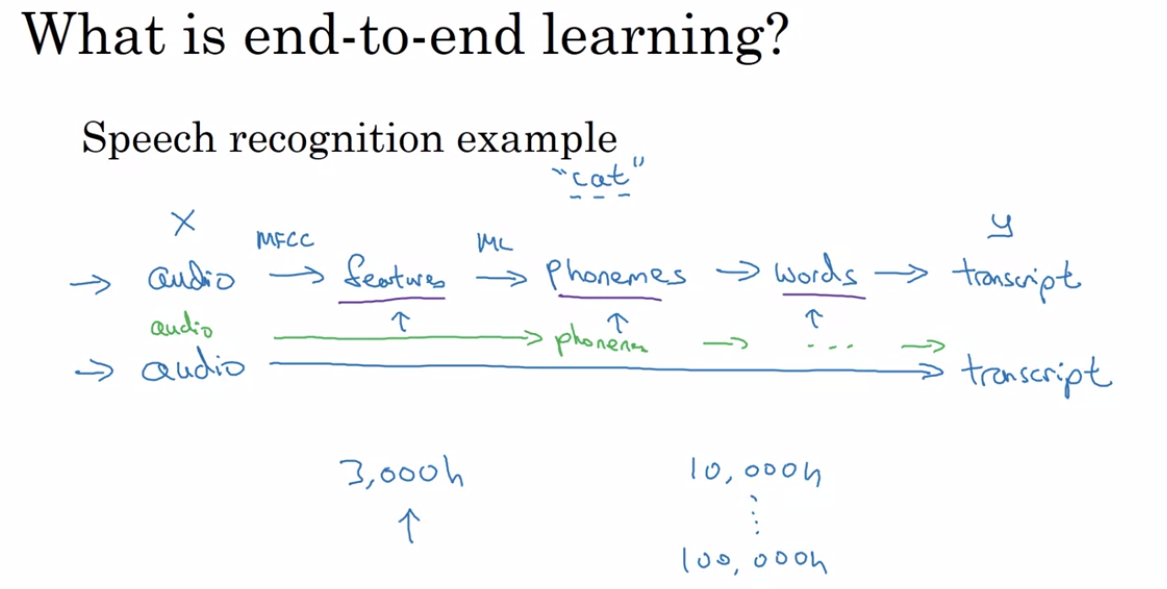 What is end-to-end learning?
Speech recognition example
"cat"
X MFCC ML y
→ audio → features → phonemes → words → transcript
↑ ↑ ↑
audio → phonemes → ... →
→ audio → transcript
3,000h 10,000h
↑ ⋮
100,000h